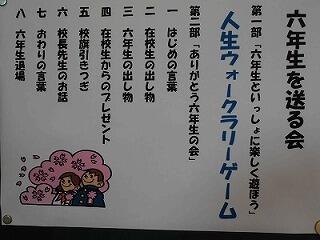 六年生を送る会
第一部「六年生といっしょに楽しく遊ぼう」
人生ウォークラリーゲーム
第二部「ありがとう六年生の会」
一 はじめの言葉
二 在校生の出し物
三 六年生の出し物
四 在校生からのプレゼント
五 校旗引きつぎ
六 校長先生のお話
七 おわりの言葉
八 六年生退場